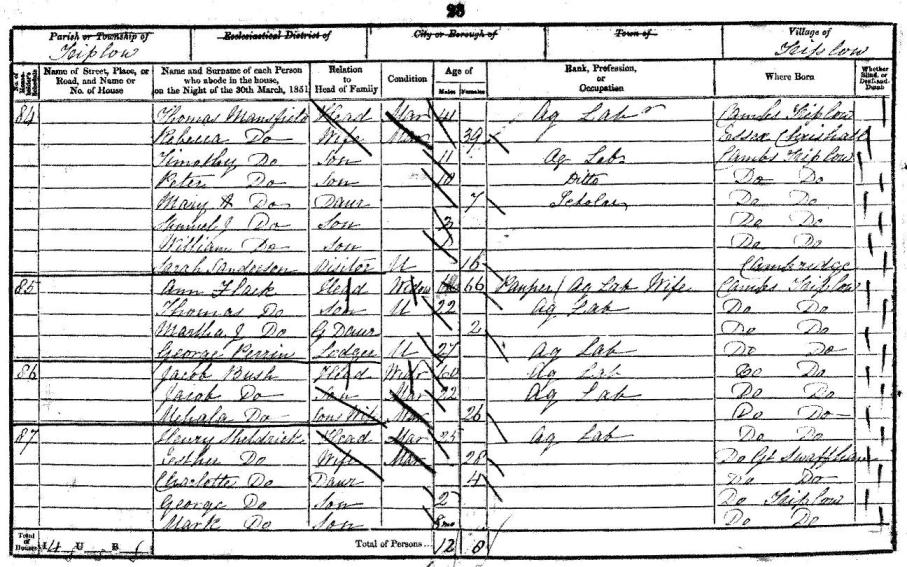 23
Parish or Township of Ecclesiastical District of City or Borough of Town of Village of
Triplow Triplow
Name of Street, Place, or Road, and Name or No. of House
Name and Surname of each Person who abode in the house, on the Night of the 30th March, 1851
Relation to Head of Family
Condition
Age of
Males Females
Rank, Profession, or Occupation
Where Born
Whether Blind, or Deaf-and-Dumb
84 Thomas Mansfield Head Mar 41 Ag Lab Cambs Triplow
Rebecca Do Wife Mar 39 Essex Chrishall
Timothy Do Son 11 Ag Lab Cambs Triplow
Peter Do Son 10 Ditto Do Do
Mary A Do Daur 7 Scholar Do Do
Samuel J Do Son 3 Do Do
William Do Son Do Do
Sarah Sanderson Visitor U 16 Cambridge
85 Ann Flack Head Widow 66 Pauper / Ag Lab Wife Cambs Triplow
Thomas Do Son U 22 Ag Lab Do Do
Martha J Do G Daur 2 Do Do
George Perrin Lodger U 27 Ag Lab Do Do
86 Jacob Bush Head Widr 60 Ag Lab Do Do
Jacob Do Son Mar 22 Ag Lab Do Do
Mehala Do Sons Wife Mar 26 Do Do
87 Henry Sheldrick Head Mar 25 Ag Lab Do Do
Esther Do Wife Mar 28 Do Gt Swaffham
Charlotte Do Daur 4 Do Do
George Do Son 2 Do Triplow
Mark Do Son 8 mo Do Do
Total of Houses I 4 U B Total of Persons... 12 8